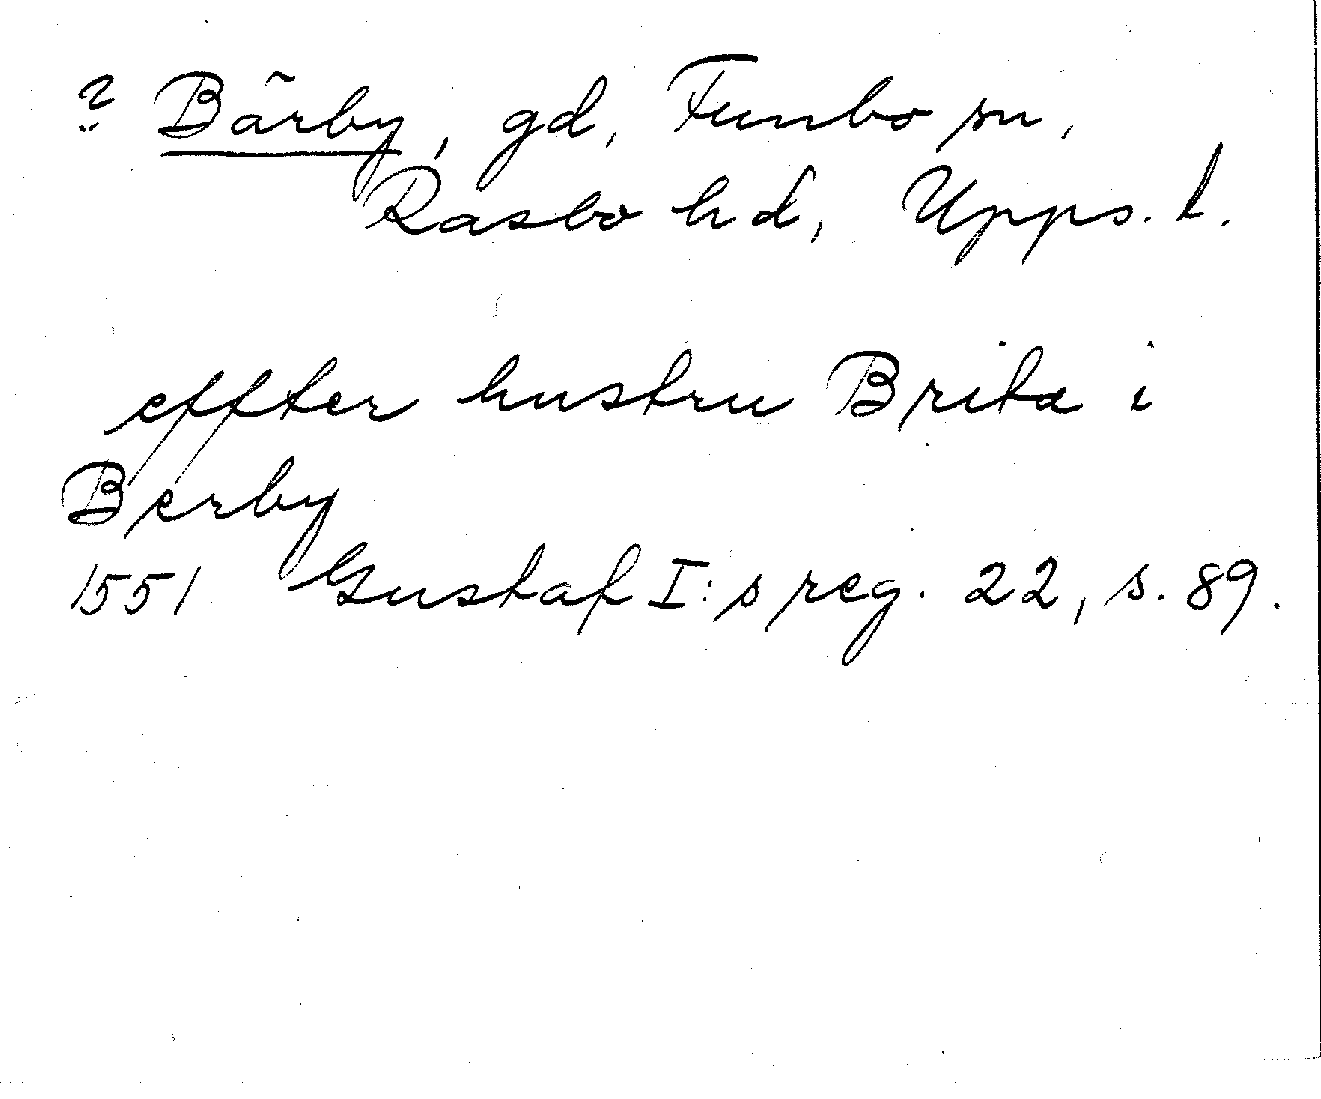 ? Bärby, gd, Funbo sn,
Rasbo hd, Upps. l.
effter hustru Brita i
Berby
1551 Gustaf I:s reg. 22, s. 89.